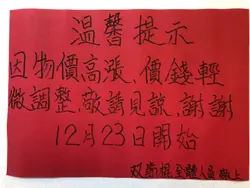 溫馨提示
因物價高漲,價錢輕
微調整,敬請見諒,謝謝
12月23日開始
全體人員敬上